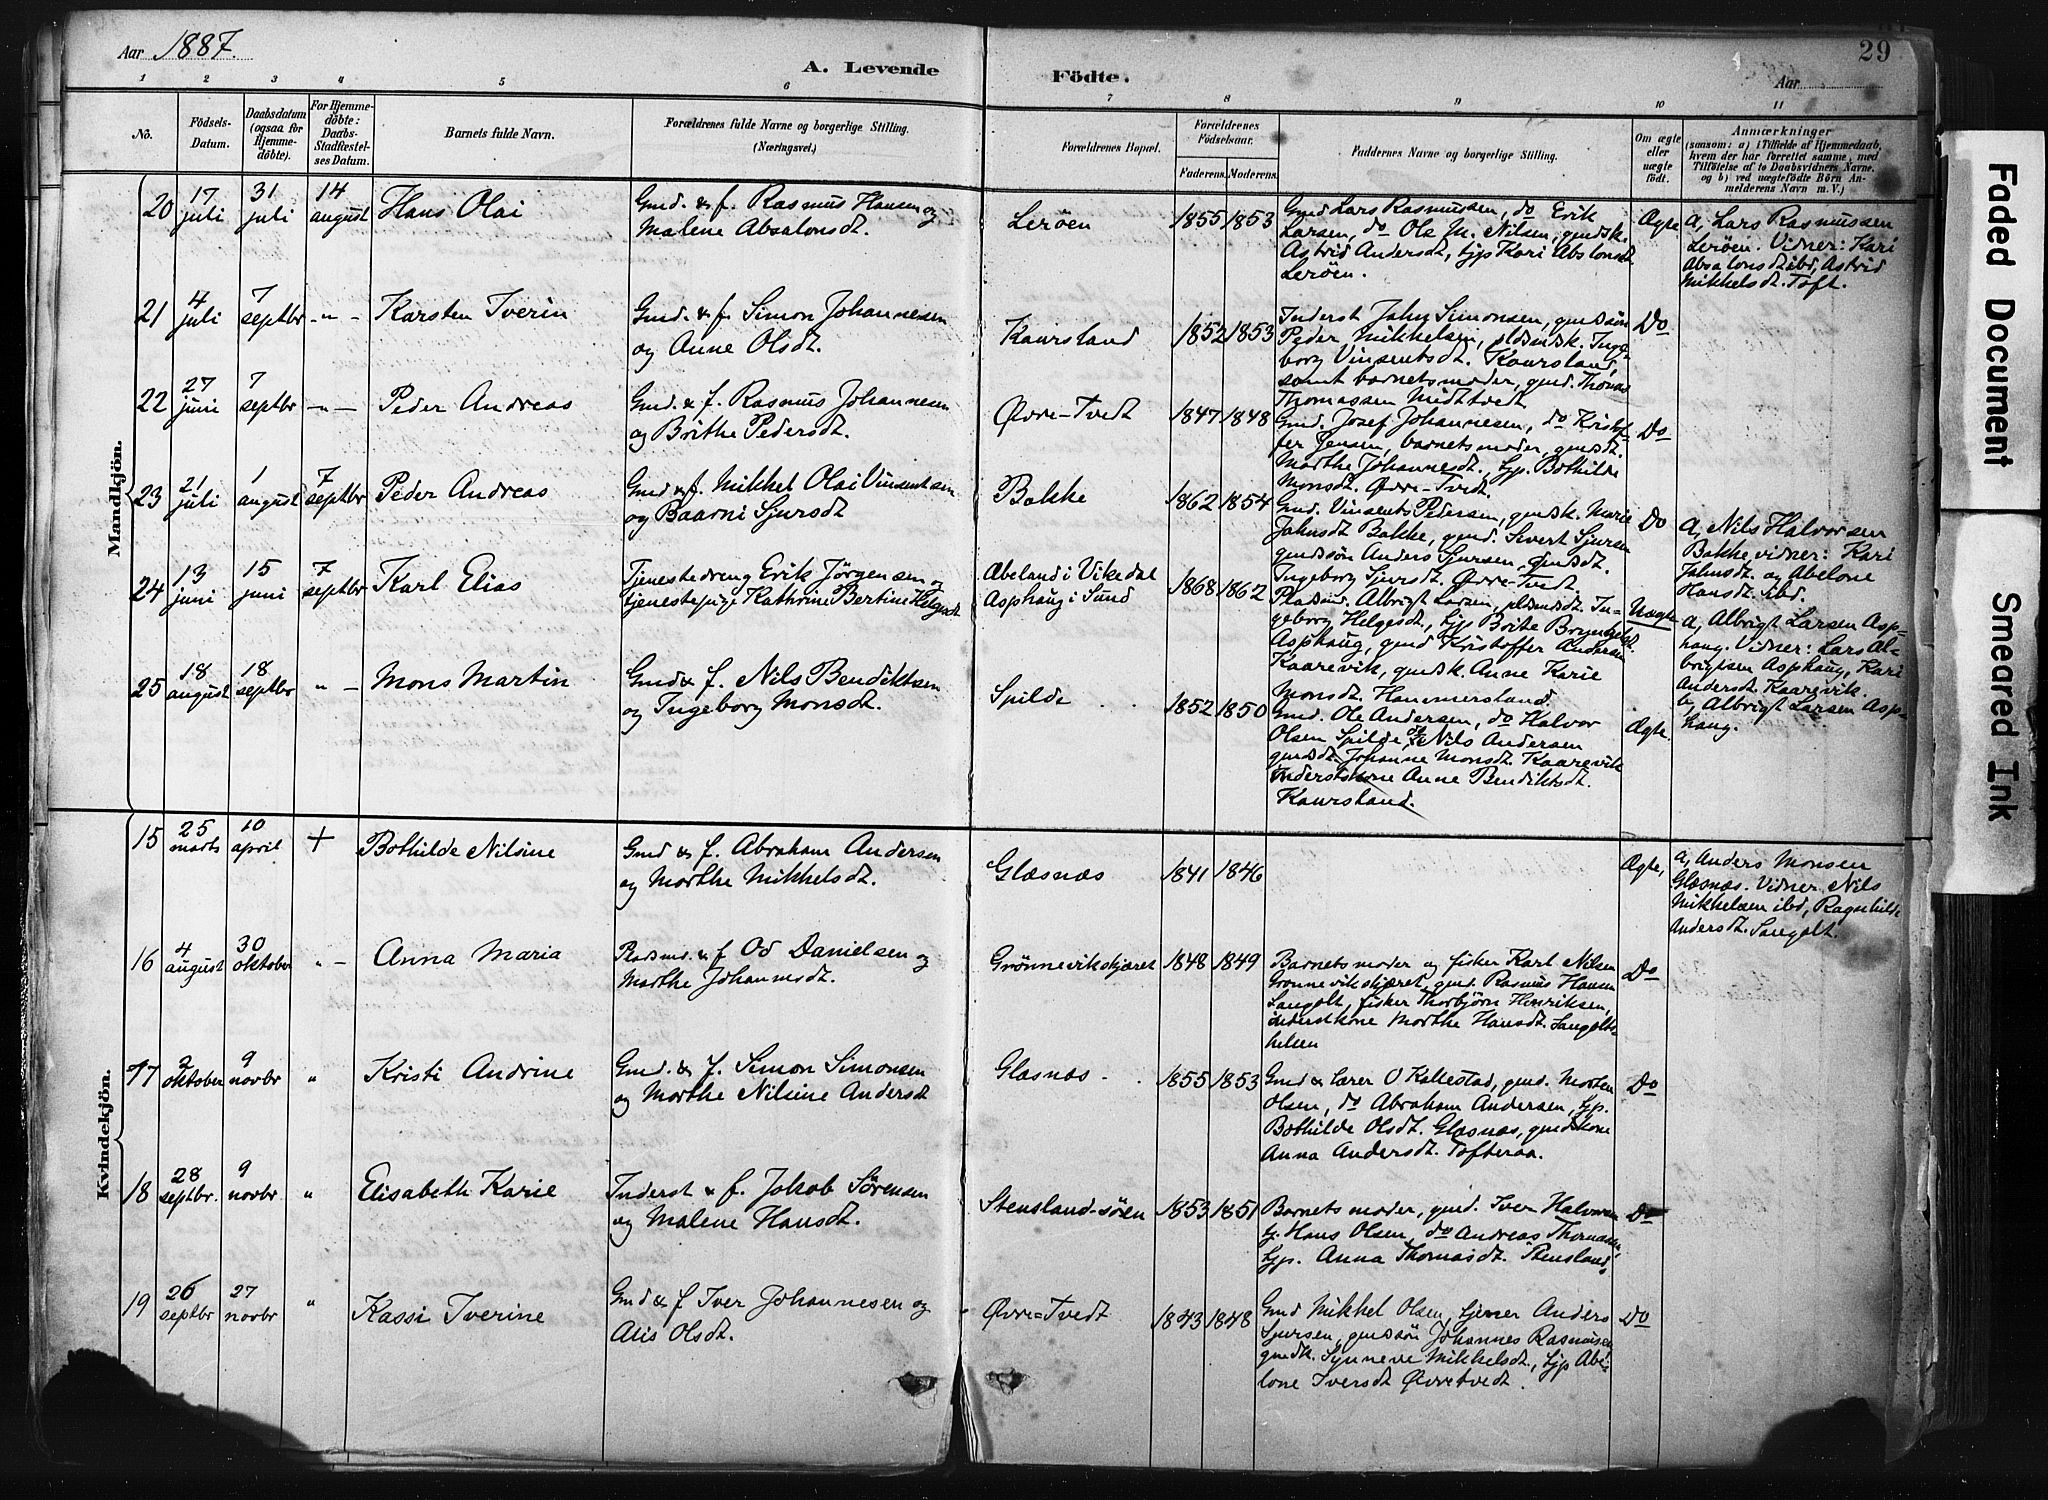 Aar 1887.
A. Levende Födte.
Aar
29
1 2 3 4 5 6 7 8 9 10 11
No.
Födsels-
Datum.
Daabsdatum
(ogsaa for
Hjemme-
döbte).
For Hjemme-
döbte:
Daabs-
Stadfæstel-
ses Datum.
Barnets fulde Navn.
Forældrenes fulde Navne og borgerlige Stilling.
(Næringsvei.)
Forældrenes Bopæl.
Forældrenes
Födselsaar.
Faderens. Moderens.
Faddernes Navne og borgerlige Stilling.
Om ægte
eller
uægte
födt.
Anmærkninger
(saasom: a) i Tilfælde af Hjemmedaab,
hvem der har forrettet samme, med
Tilföielse af to Daabsvidners Navne,
og b) ved uægtefödte Börn An-
melderens Navn m. V.)
Mandkjön.
20 17 juli 31 juli 14 august Hans Olai
Gmd. & f. Rasmus Hansen og
Malene Absalonsdt.
Lerøen 1855 1853
Gmd Lars Rasmussen, do Erik
Larsen, do Ole M. Nilsen, gmdsk.
Astrid Andersdt, tjp Kari Abslonsdt.
Lerøen.
Ægte
a, Lars Rasmussen
Lerøen. Vidner: Kari
Absalonsdt ibd, Astrid
Mikkelsdt. Toft.
21 4 juli 7 septbr -„- Karsten Iverin
Gmd. & f. Simon Johannesen
og Anne Olsdt.
Kaursland 1852 1853
Inderst Jahn Simonsen, gmdssøn
Peder Mikkelsen, pldsmdsk. Inge-
borg Vinsentsdt. Kaursland,
samt barnets moder, gmd. Thomas
Thomassen Midttvedt
Do
22 27 juni 7 septbr -„- Peder Andreas
Gmd. & f. Rasmus Johannesen
og Brithe Pedersdt.
Øvre-Tvedt 1847 1848
Gmd. Josef Johannesen, do Kristof-
fer Jensen, barnets moder, gmdsdt.
Marthe Johannesdt., tjp. Bothilde
Monsdt. Øvre-Tvedt.
Do
23 21 juli 1 august 7 septbr Peder Andreas
Gmd & f. Mikkel Olai Vinsentsen
og Baarni Sjursdt
Bakke 1862 1854
Gmd. Vinsents Pedersen, gmdsk. Marie
Jahnsdt Bakke, gmd. Sivert Sjursen
gmdssøn Anders Sjursen, gmdsdt.
Ingeborg Sjursdt. Øvre-Tvedt.
Do
a, Nils Halvorsen
Bakke vidner: Kari
Jahnsdt. og Abelone
Hansdt. ibd.
24 13 juni 15 juni 7 septbr Karl Elias
Tjenestedreng Erik Jørgensen og
tjenestepige Kathrine Bertine Helgesdt
Abeland i Vikedal
Asphaug i Sund
1868 1862
Pladsmd. Albrigt Larsen, pldsmdsdt. In-
geborg Helgesdt., tjp Brite Brynhildsdt.
Asphaug, gmd Kristoffer Andersen
Kaarevik, gmdsk. Anne Karie
Monsdt. Hammersland.
Uægte
a, Albrigt Larsen Asp-
haug. Vidner: Lars Al-
brigtsen Asphaug, Kari
Andersdt. Kaarevik.
b, Albrigt Larsen Asp-
haug.
25 18 august 18 septbr „ - Mons Martin
Gmd & f. Nils Bendiktsen
og Ingeborg Monsdt.
Spilde 1852 1850
Gmd. Ole Andersen, do Halvor
Olsen Spilde, do Nils Andersen
gmdsdt. Johanne Monsdt. Kaarevik
Inderstkone Anne Bendiktsdt.
Kaursland.
Ægte.
Kvindekjön.
15 25 marts 10 april + Bothilde Nilsine
Gmd & f. Abraham Andersen
og Marthe Mikkelsdt.
Glæsnæs 1841 1846
Ægte,
a, Anders Monsen
Glæsnæs. Vidner Nils
Mikkelsen ibd, Ragnhilde
Andersdt. Sangolt.
16 4 august 30 oktober „ - Anna Maria
Pladsmd. & f Od Danielsen og
Marthe Johannesdt.
Grönnevikskjæret 1848 1849
Barnets moder og fisker Karl Nilsen
Grønnevikskjæret, gmd. Rasmus Hansen
Sangolt, fisker Thorbjörn Henriksen,
inderstkone Marthe Hansdt. Sangolts-
helsen
Do
17 2 oktober 9 novbr „ Kristi Andrine
Gmd. & f. Simon Simonsen
og Marthe Nilsine Andersdt
Glæsnæs 1855 1853
Gmd & lærer O Kallestad, gmd. Morten
Olsen, do Abraham Andersen, tjp.
Bothilde Olsdt. Glæsnæs, gmdskone
Anna Andersdt. Tofteraa.
Do
18 28 septbr. 9 novbr „ Elisabeth Karie
Inderst & f. Jakob Sørensen
og Malene Hansdt.
Stensland-søren 1853 1851
Barnets moder, gmd. Iver Halvorsen
tj. Hans Olsen, do Andreas Thomassen,
tjp. Anna Thomasdt. Stensland.
Do
19 26 septbr 27 novbr „ Kassi Iverine
Gmd & f Iver Johannesen og
Alis Olsdt.
Øvre-Tvedt 1843 1848
Gmd Mikkel Olsen, tjener Anders
Sjursen, gmdssøn Johannes Rasmussen
gmdk. Synneve Mikkelsdt., tjp Abe-
lone Iversdt Øvretvedt.
Do
Faded Document
Smeared Ink